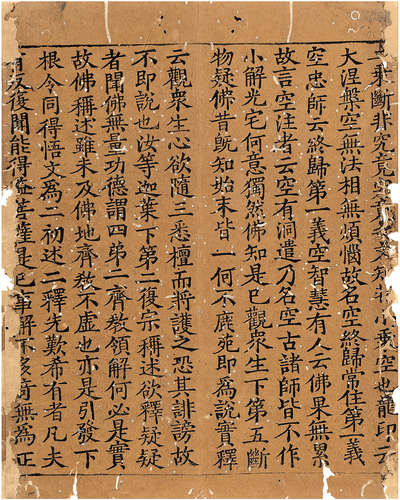 乘斷非究竟空也龍印云
大涅槃空無法相無煩惱故名空終歸常住第一義
空忠師云終歸第一義空智慧有人云佛果無累
故言空注者云空有洞遣乃名空古諸師皆不作
小解光宅何意獨然佛知是已觀衆生下第五斷
物疑佛昔旣知始末皆一何不鹿苑即爲說實釋
云觀衆生心欲隨三悉檀而將護之恐其誹謗故
不即說也汝等迦葉下第二復宗稱述欲釋疑疑
者聞佛無量功德謂四弟二齊敎領解何必是實
故佛稱述雖未及佛地齊敎不虛也亦是引發下
根令同得悟文爲二初述二釋先歎希有者凡夫
有反復聞能得菩薩是已事解不多奇無爲正